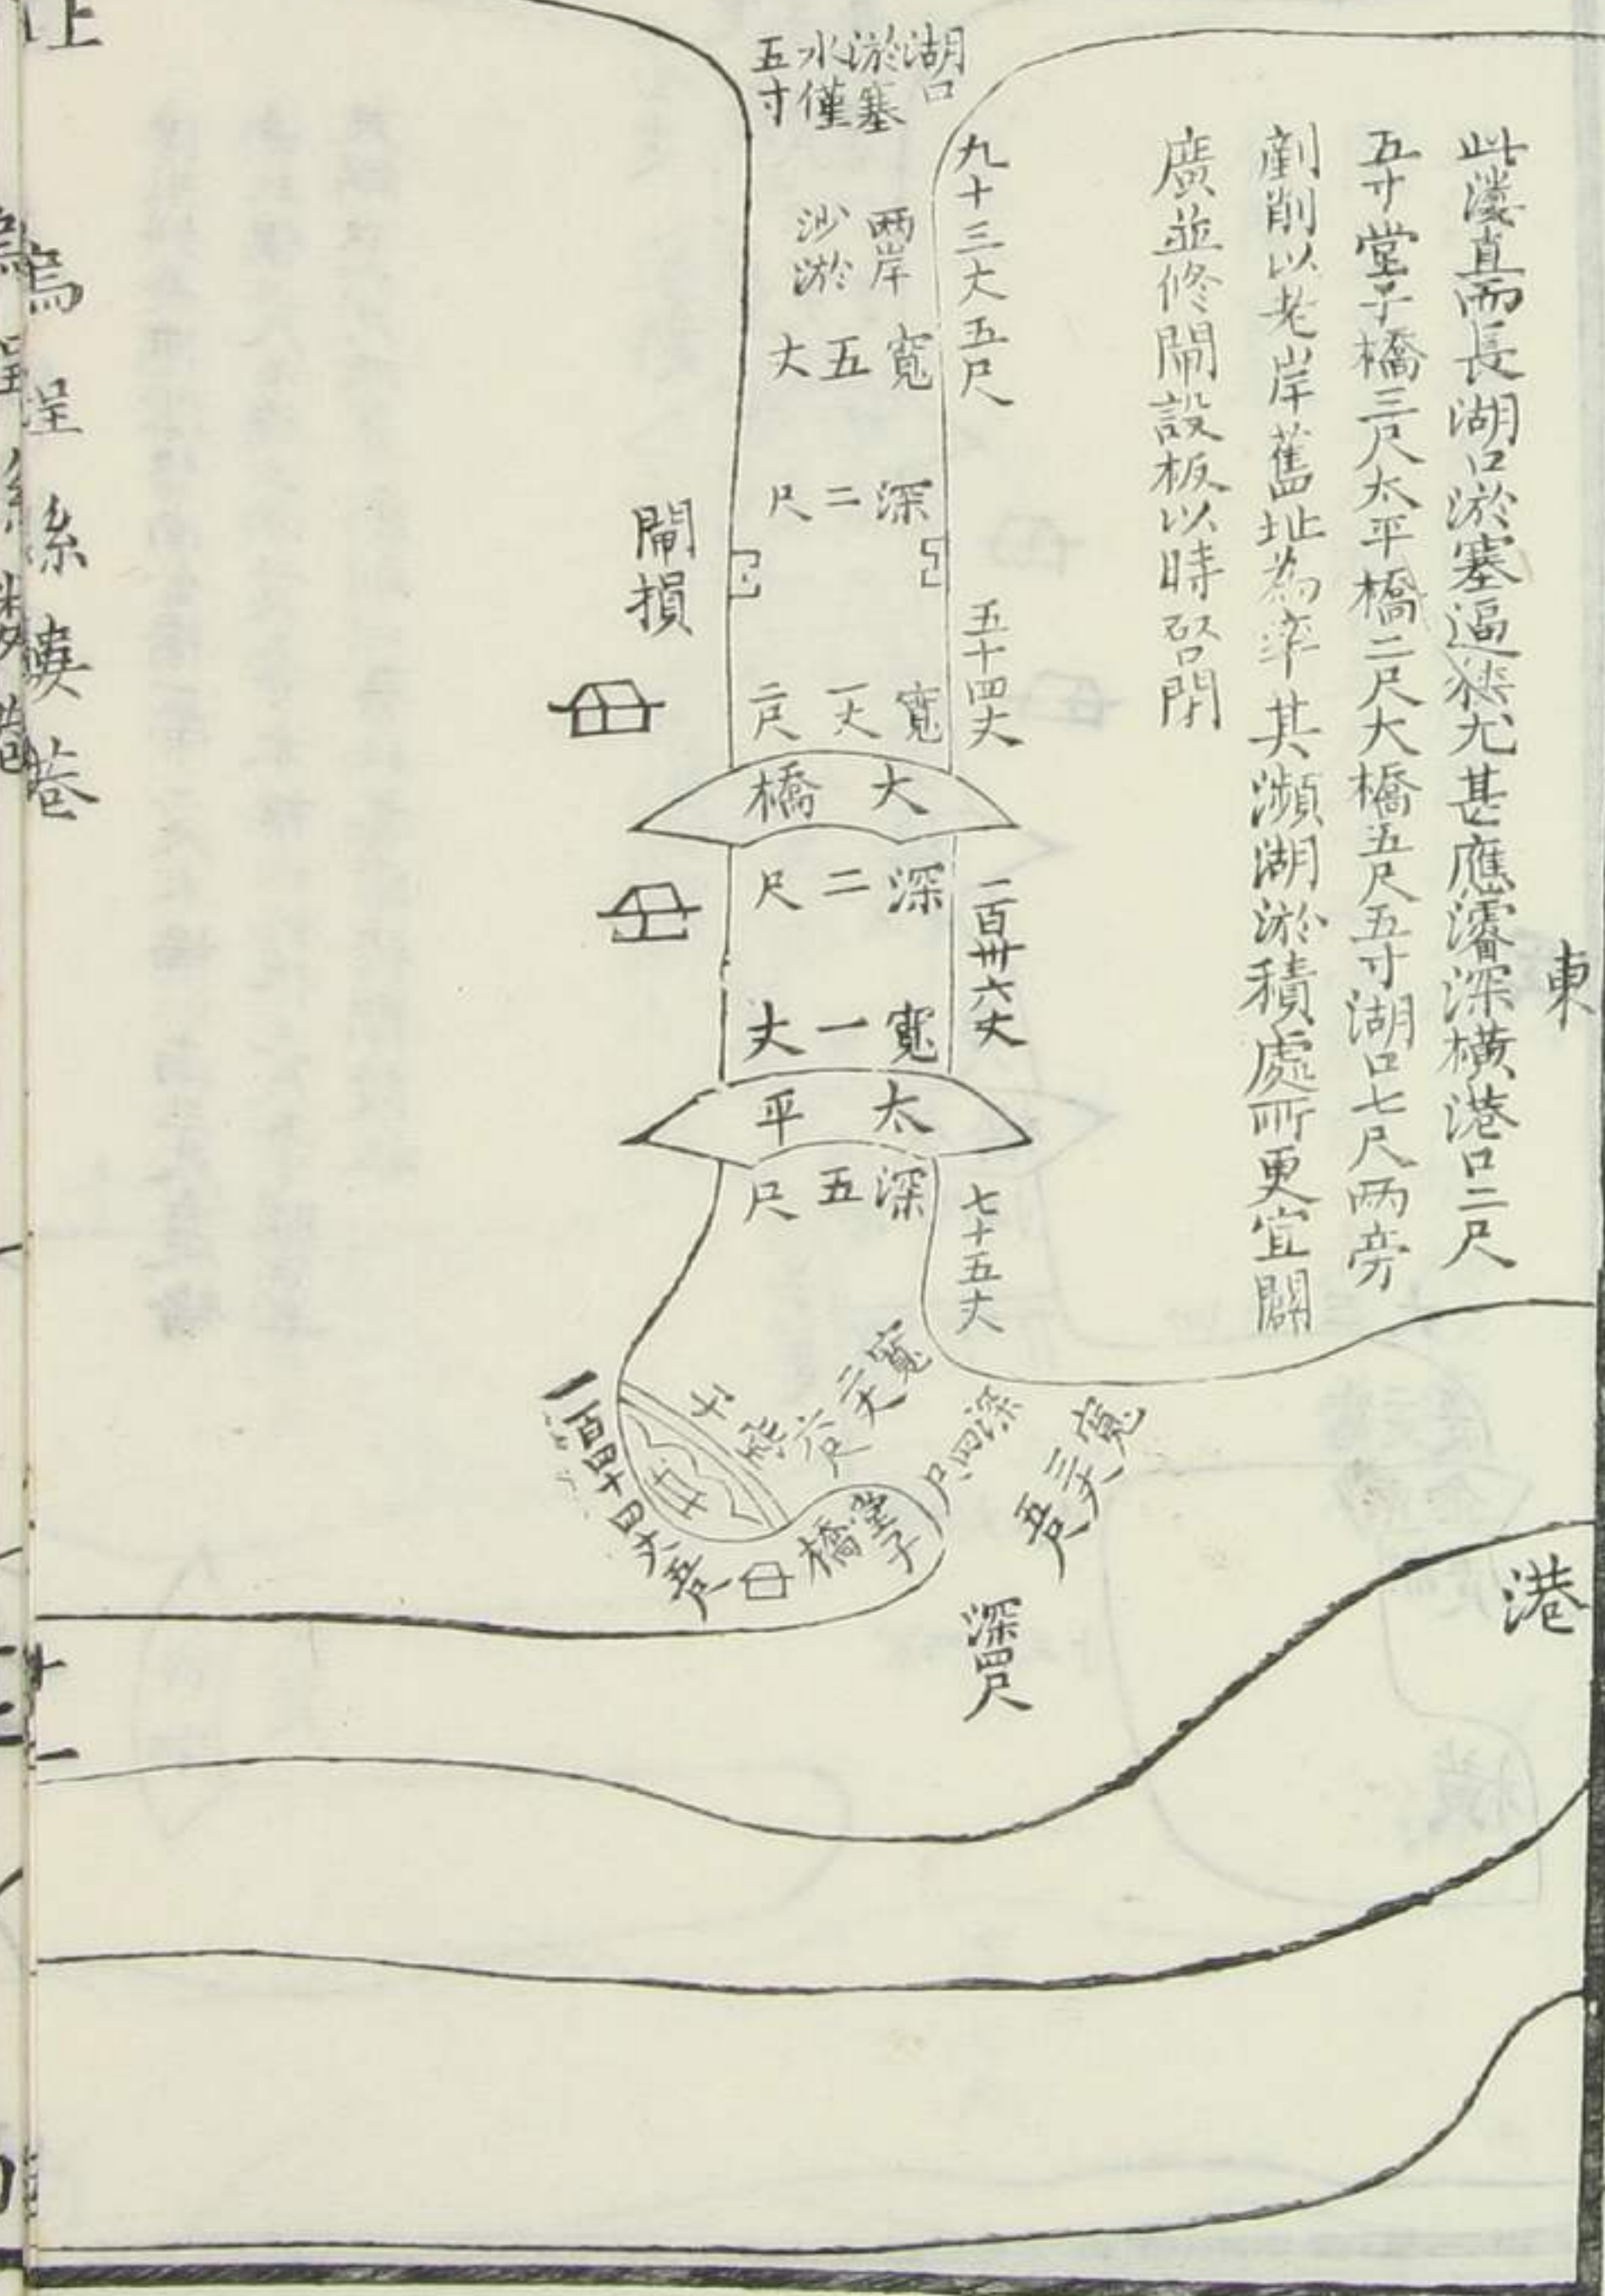 東
此漊直而長湖口淤塞逼狹尤甚應濬深橫港口二尺
五寸堂子橋三尺太平橋二尺大橋五尺五寸湖口七尺兩旁
剷削以老岸舊址為率其瀕湖淤積處所更宜闢
廣並修閘設板以時啓閉
港
湖口
淤塞
水僅
五寸
九十三丈五尺
兩岸
沙淤
寬五丈
深二尺
閘損
五十四丈
寬一丈二尺
大橋
深二尺
二百卅六丈
寬一丈
太平
深五尺
七十五丈
寬二丈六尺
深四尺
寬三丈五尺
堂子橋
一百四十四丈五尺
深四尺
烏程絲漊港